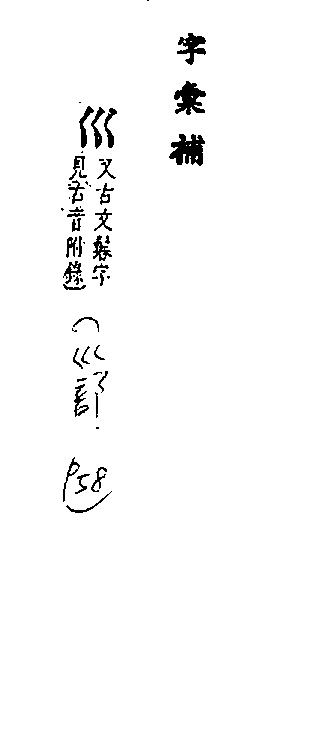 字彙補
巛
又古文鬊字
見古音附錄
(巛部
p58)